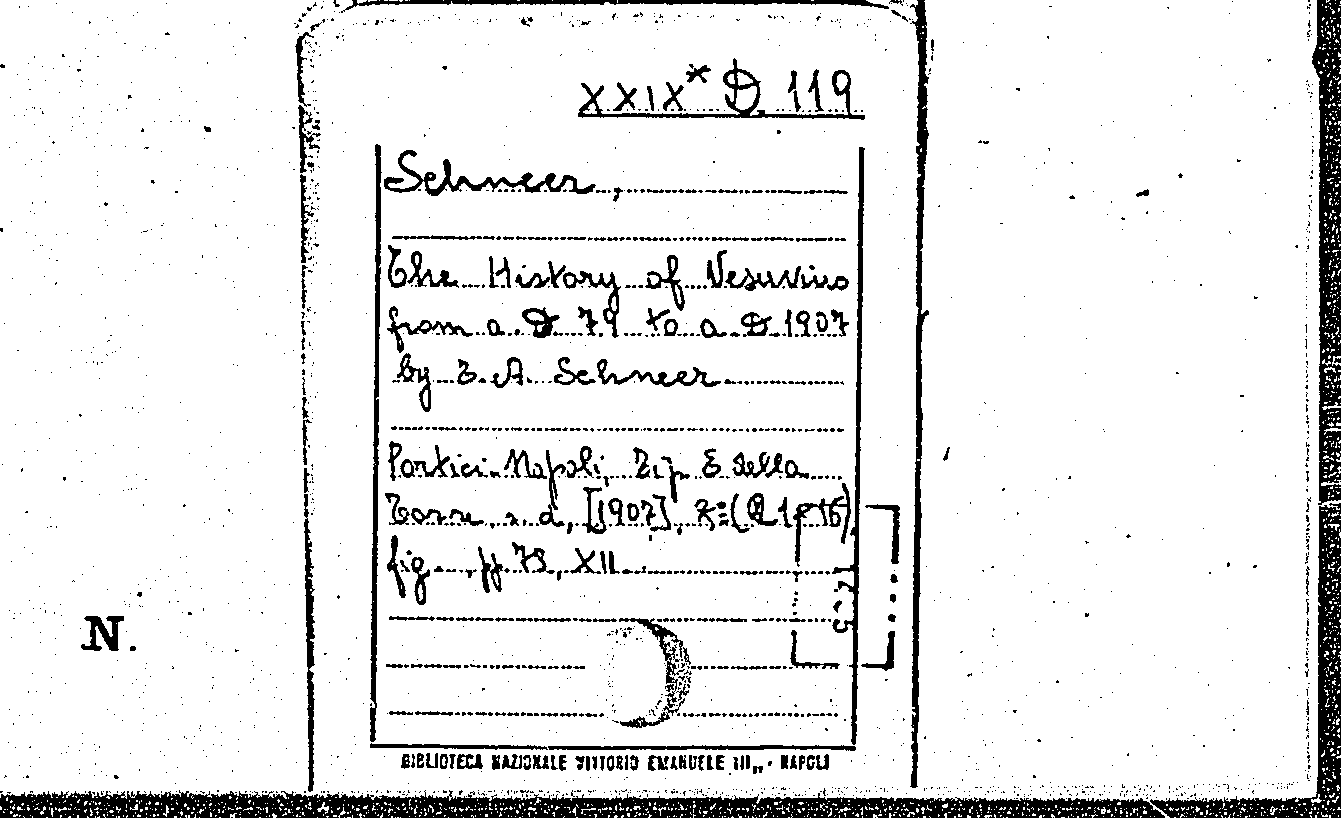 XXIX* D 119
Schneer,
The History of Vesuvius
from a. D 79 to a D 1907
by J. A. Schneer
Portici-Napoli, Tip. E della
Torre s. d, [1907],
fig. , pp 78, XII.
N.
BIBLIOTECA NAZIONALE VITTORIO EMANUELE III,, - NAPOLI